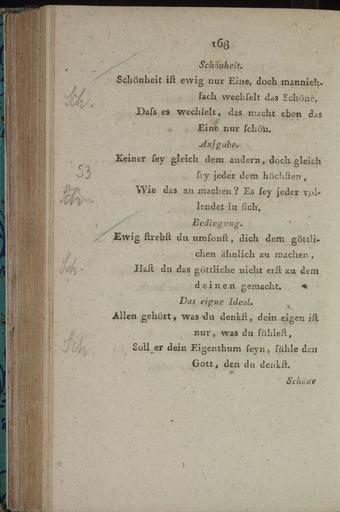 168
Schönheit.
Schönheit iſt ewig nur Eine, doch mannich-
fach wechſelt das Schöne,
Daſs es wechſelt, das macht eben das
Eine nur ſchön.
Aufgabe.
Keiner ſey gleich dem andern, doch gleich
ſey jeder dem höchſten,
Wie das zu machen? Es ſey jeder vol-
lendet in ſich.
Bedingung.
Ewig ſtrebſt du umſonſt, dich dem göttli-
chen ähnlich zu machen,
Haſt du das göttliche nicht erſt zu dem
deinen gemacht.
Das eigne Ideal.
Allen gehört, was du denkſt, dein eigen iſt
nur, was du fühleſt,
Soll er dein Eigenthum ſeyn, fühle den
Gott, den du denkſt.
Schöne
Sch.
53
Sch.
Sch